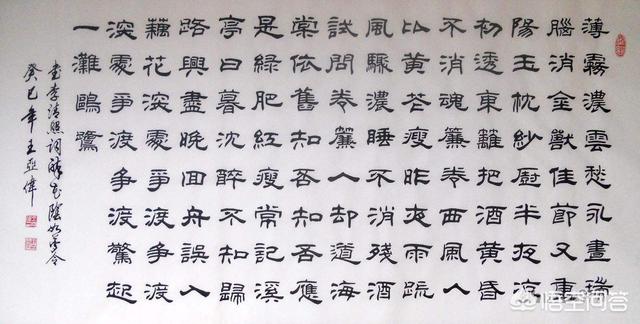 薄霧濃雲愁永晝瑞
腦消金獸佳節又重
陽玉枕紗廚半夜涼
初透東籬把酒黃昏
不消魂簾卷西風人
比黃花瘦昨夜雨疏
風驟濃睡不消殘酒
試問卷簾人却道海
棠依舊知否知否應
是綠肥紅瘦常記溪
亭日暮沈醉不知歸
路興盡晚回舟誤入
藕花深處爭渡爭渡
深處爭渡爭渡驚起
一灘鷗鷺
書李清照詞醉花陰如夢令
癸巳年王亞偉
悟空问答